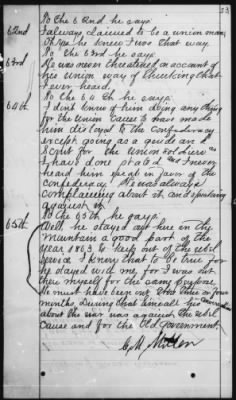 To the 62nd he says
62nd I always claimed to be a union man
he knew I was that way.
To the 63rd he says
63rd He was never threatened on account of
his union way of thinking that
I ever heard.
To the 64th he says
64th I dont know of him doing any thing
for the Union cause to have made
him disloyal to the Confederacy
except going as a guide and
Scout for the Union soldiers as
I have done stated and I never
heard him speak in favor of the
Confederacy. He was always
complaining about it and speaking
against it.
To the 65th, he says
65th Well he stayed out here in the
mountain a good part of the
year 1863 to keep out of the rebel
service I know that to be true for
he stayed with me for I was out
there myself for the same purpose.
He must have been out there three or four
months. During that time all his conversation
about the war was against the rebel
cause and for the Old Government.